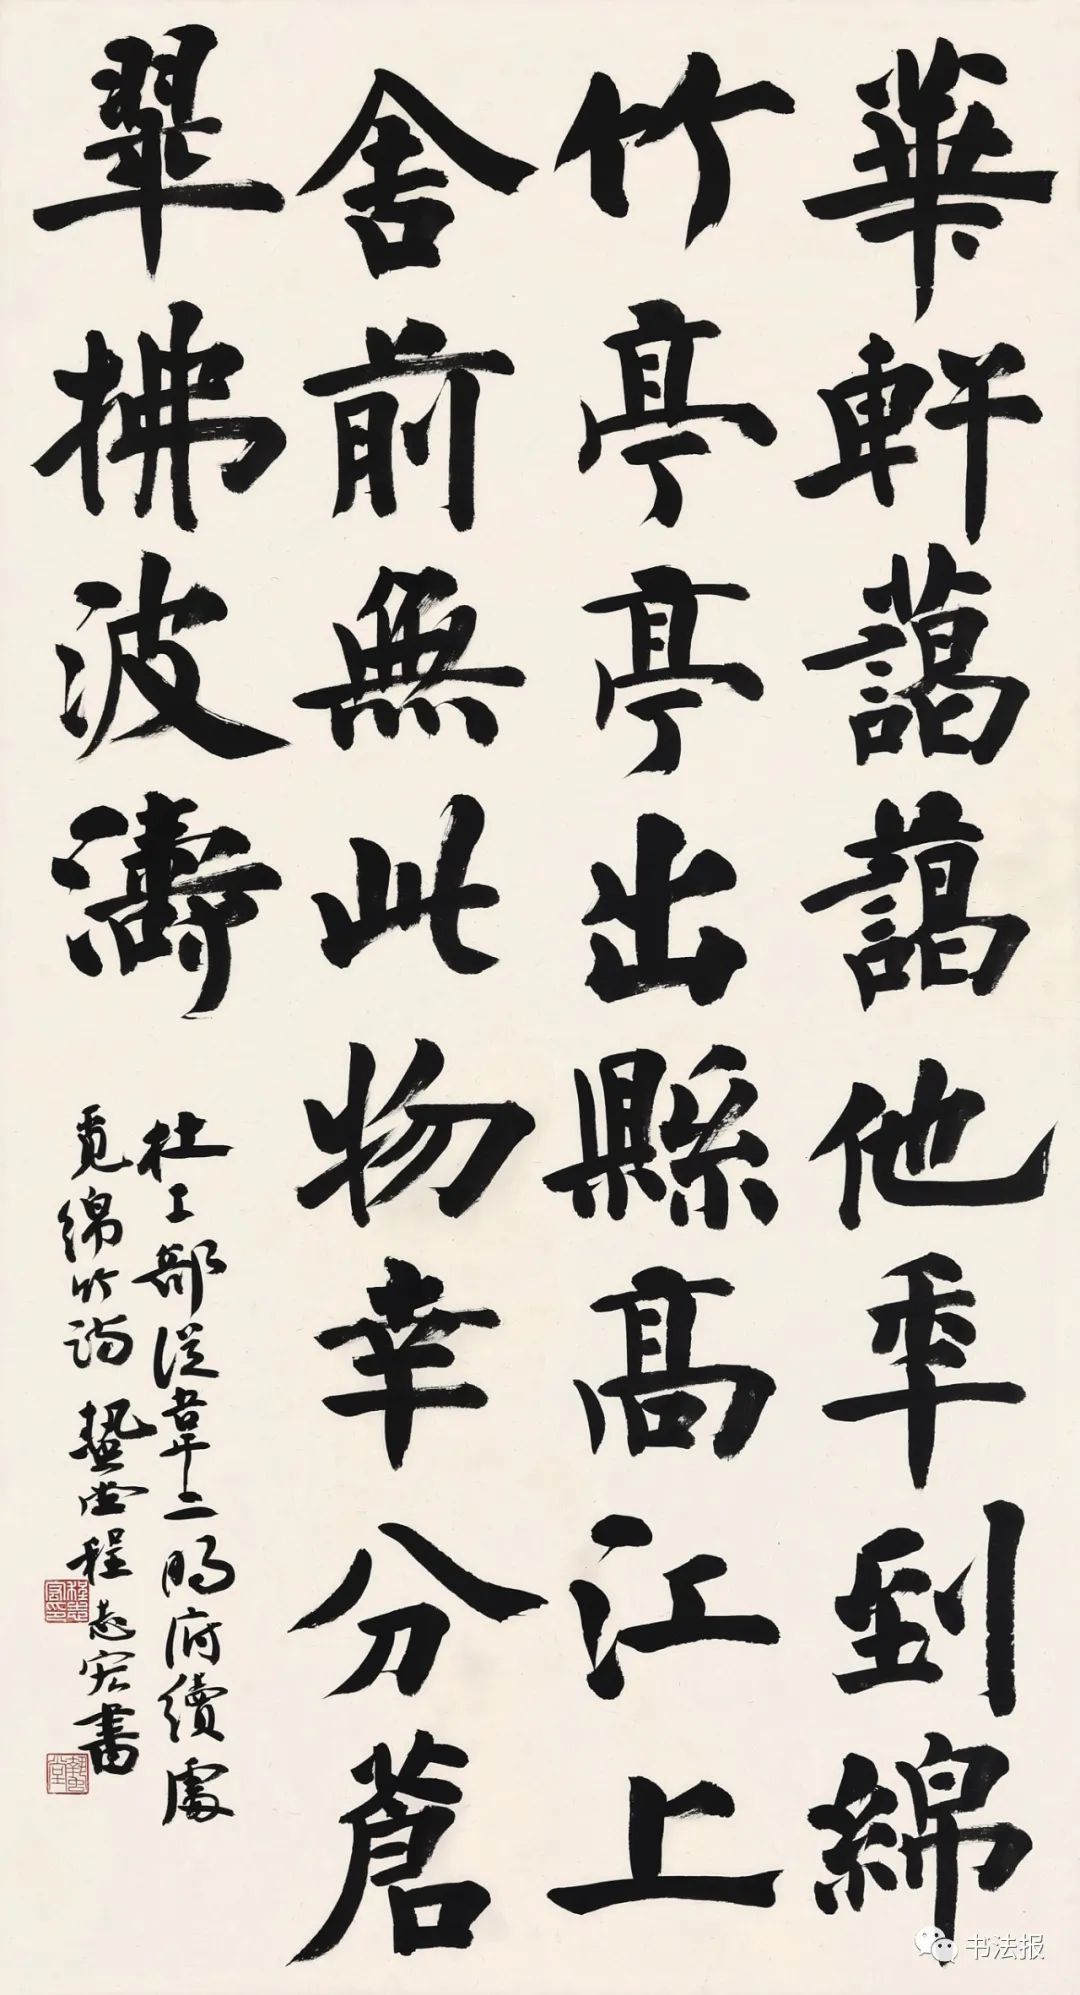 華軒藹藹他秊到綿
竹亭亭出縣高江上
舍前無此物幸分蒼
翠拂波濤
杜工部從韋二明府續處
覓綿竹詩 蟄堂程志宏書
书法报